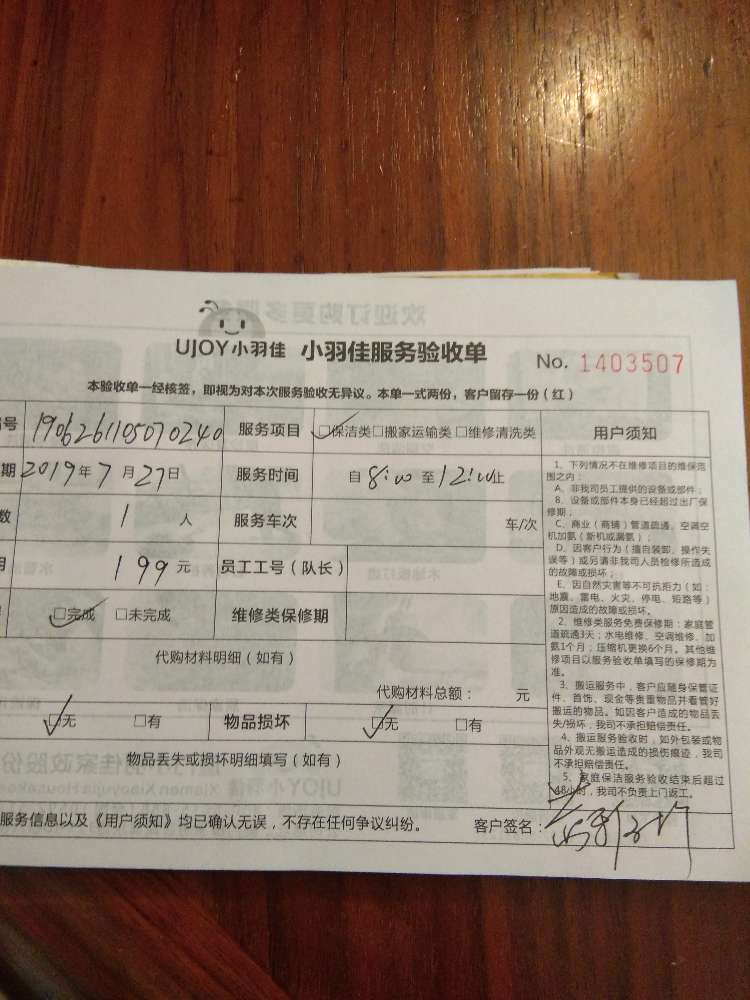 UJOY小羽佳 小羽佳服务验收单 No. 1403507
本验收单一经核签，即视为对本次服务验收无异议。本单一式两份，客户留存一份（红）
号 1906261105070240 服务项目 □保洁类□搬家运输类□维修清洗类 用户须知
期 2019年7月27日 服务时间 自8:00至12:00止
数 1人 服务车次 车/次
199元 员工工号（队长）
□完成 □未完成 维修类保修期
代购材料明细（如有）
代购材料总额： 元
□无 □有 物品损坏 □无 □有
物品丢失或损坏明细填写（如有）
1、下列情况不在维修项目的维保范
围之内：
A、非我司员工提供的设备或部件；
B、设备或部件本身已经超过出厂保
修期；
C、商业（商铺）管道疏通、空调空
机加氨（新机或漏氨）；
D、因客户行为（擅自装卸、操作失
误等）或另请非我司人员检修所造成
的故障或损坏；
E、因自然灾害等不可抗拒力（如：
地震、雷电、火灾、停电、短路等）
原因造成的故障或损坏。
2、维修类服务免费保修期：家庭管
道疏通3天；水电维修、空调维修、加
氨1个月；压缩机更换6个月。其他维
修项目以服务验收单填写的保修期为
准。
3、搬运服务中，客户应随身保管证
件、首饰、现金等贵重物品并看管好
搬运的物品。如因客户造成的物品丢
失/损坏，我司不承担赔偿责任。
4、搬运服务验收时，如外包装或物
品外观无搬运造成的损伤痕迹，我司
不承担赔偿责任。
5、家庭保洁服务验收结束后超过
48小时，我司不负责上门返工。
服务信息以及《用户须知》均已确认无误，不存在任何争议纠纷。 客户签名：